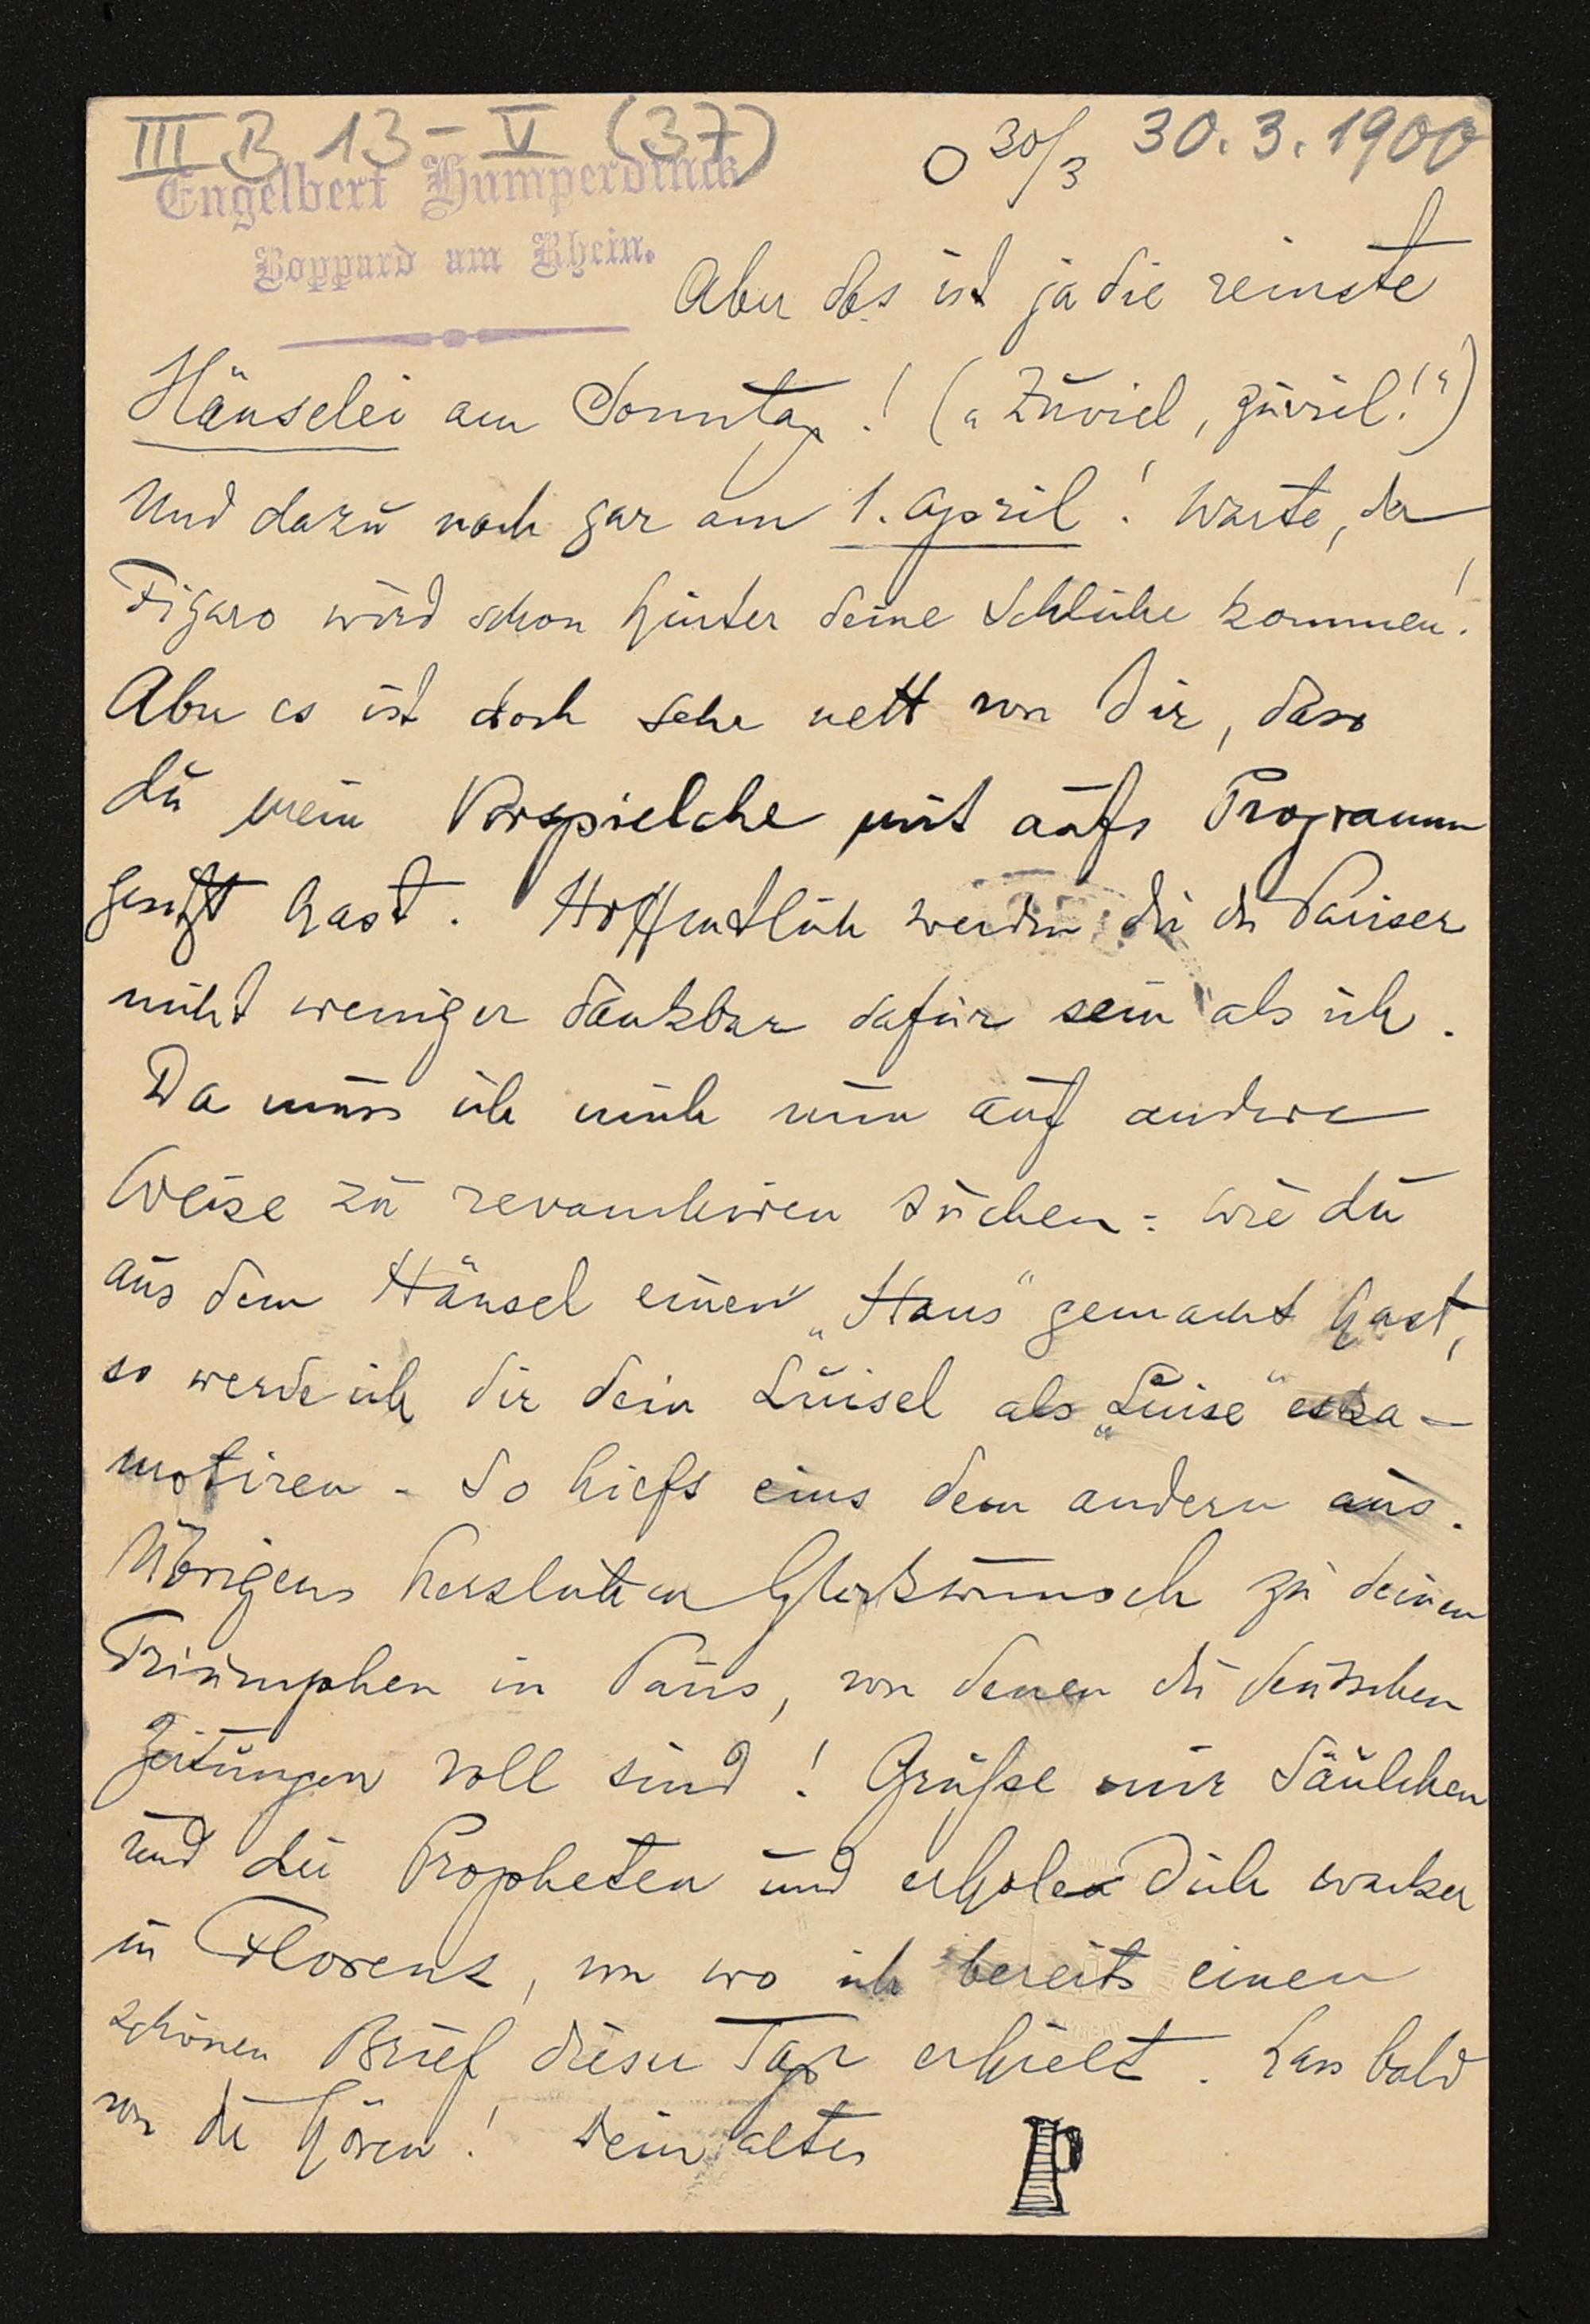 III B 13 - V (37)
Engelbert Humperdinck
Boppard am Rhein.
30/3 30.3.1900
Aber das ist ja die reinste
Hänselei am Sonntag! („Zuviel, zuviel!“)
Und dazu noch gar am 1. April! Warte, der
Figaro wird schon hinter deine Schliche kommen!
Aber es ist doch sehr nett von dir, dass
du mein Vorspielche mit aufs Programm
gesetzt hast. Hoffentlich werden dir die Pariser
nicht weniger dankbar dafür sein als ich.
Da muss ich mich nun auf andere
Weise zu revanchiren suchen: wie du
aus dem Hänsel einen „Hans“ gemacht hast,
so werde ich dir dein Luisel als „Luise“ eska-
motiren - So hilfts eins dem andern aus.
Übrigens herzlichen Glückwunsch zu deinen
Triumphen in Paris, von denen die deutschen
Zeitungen voll sind! Grüße mir Säulchen
und die Propheten und erhole Dich wacker
in Florenz, von wo ich bereits einen
schönen Brief dieser Tage erhielt. Lass bald
von dir hören! Dein alter